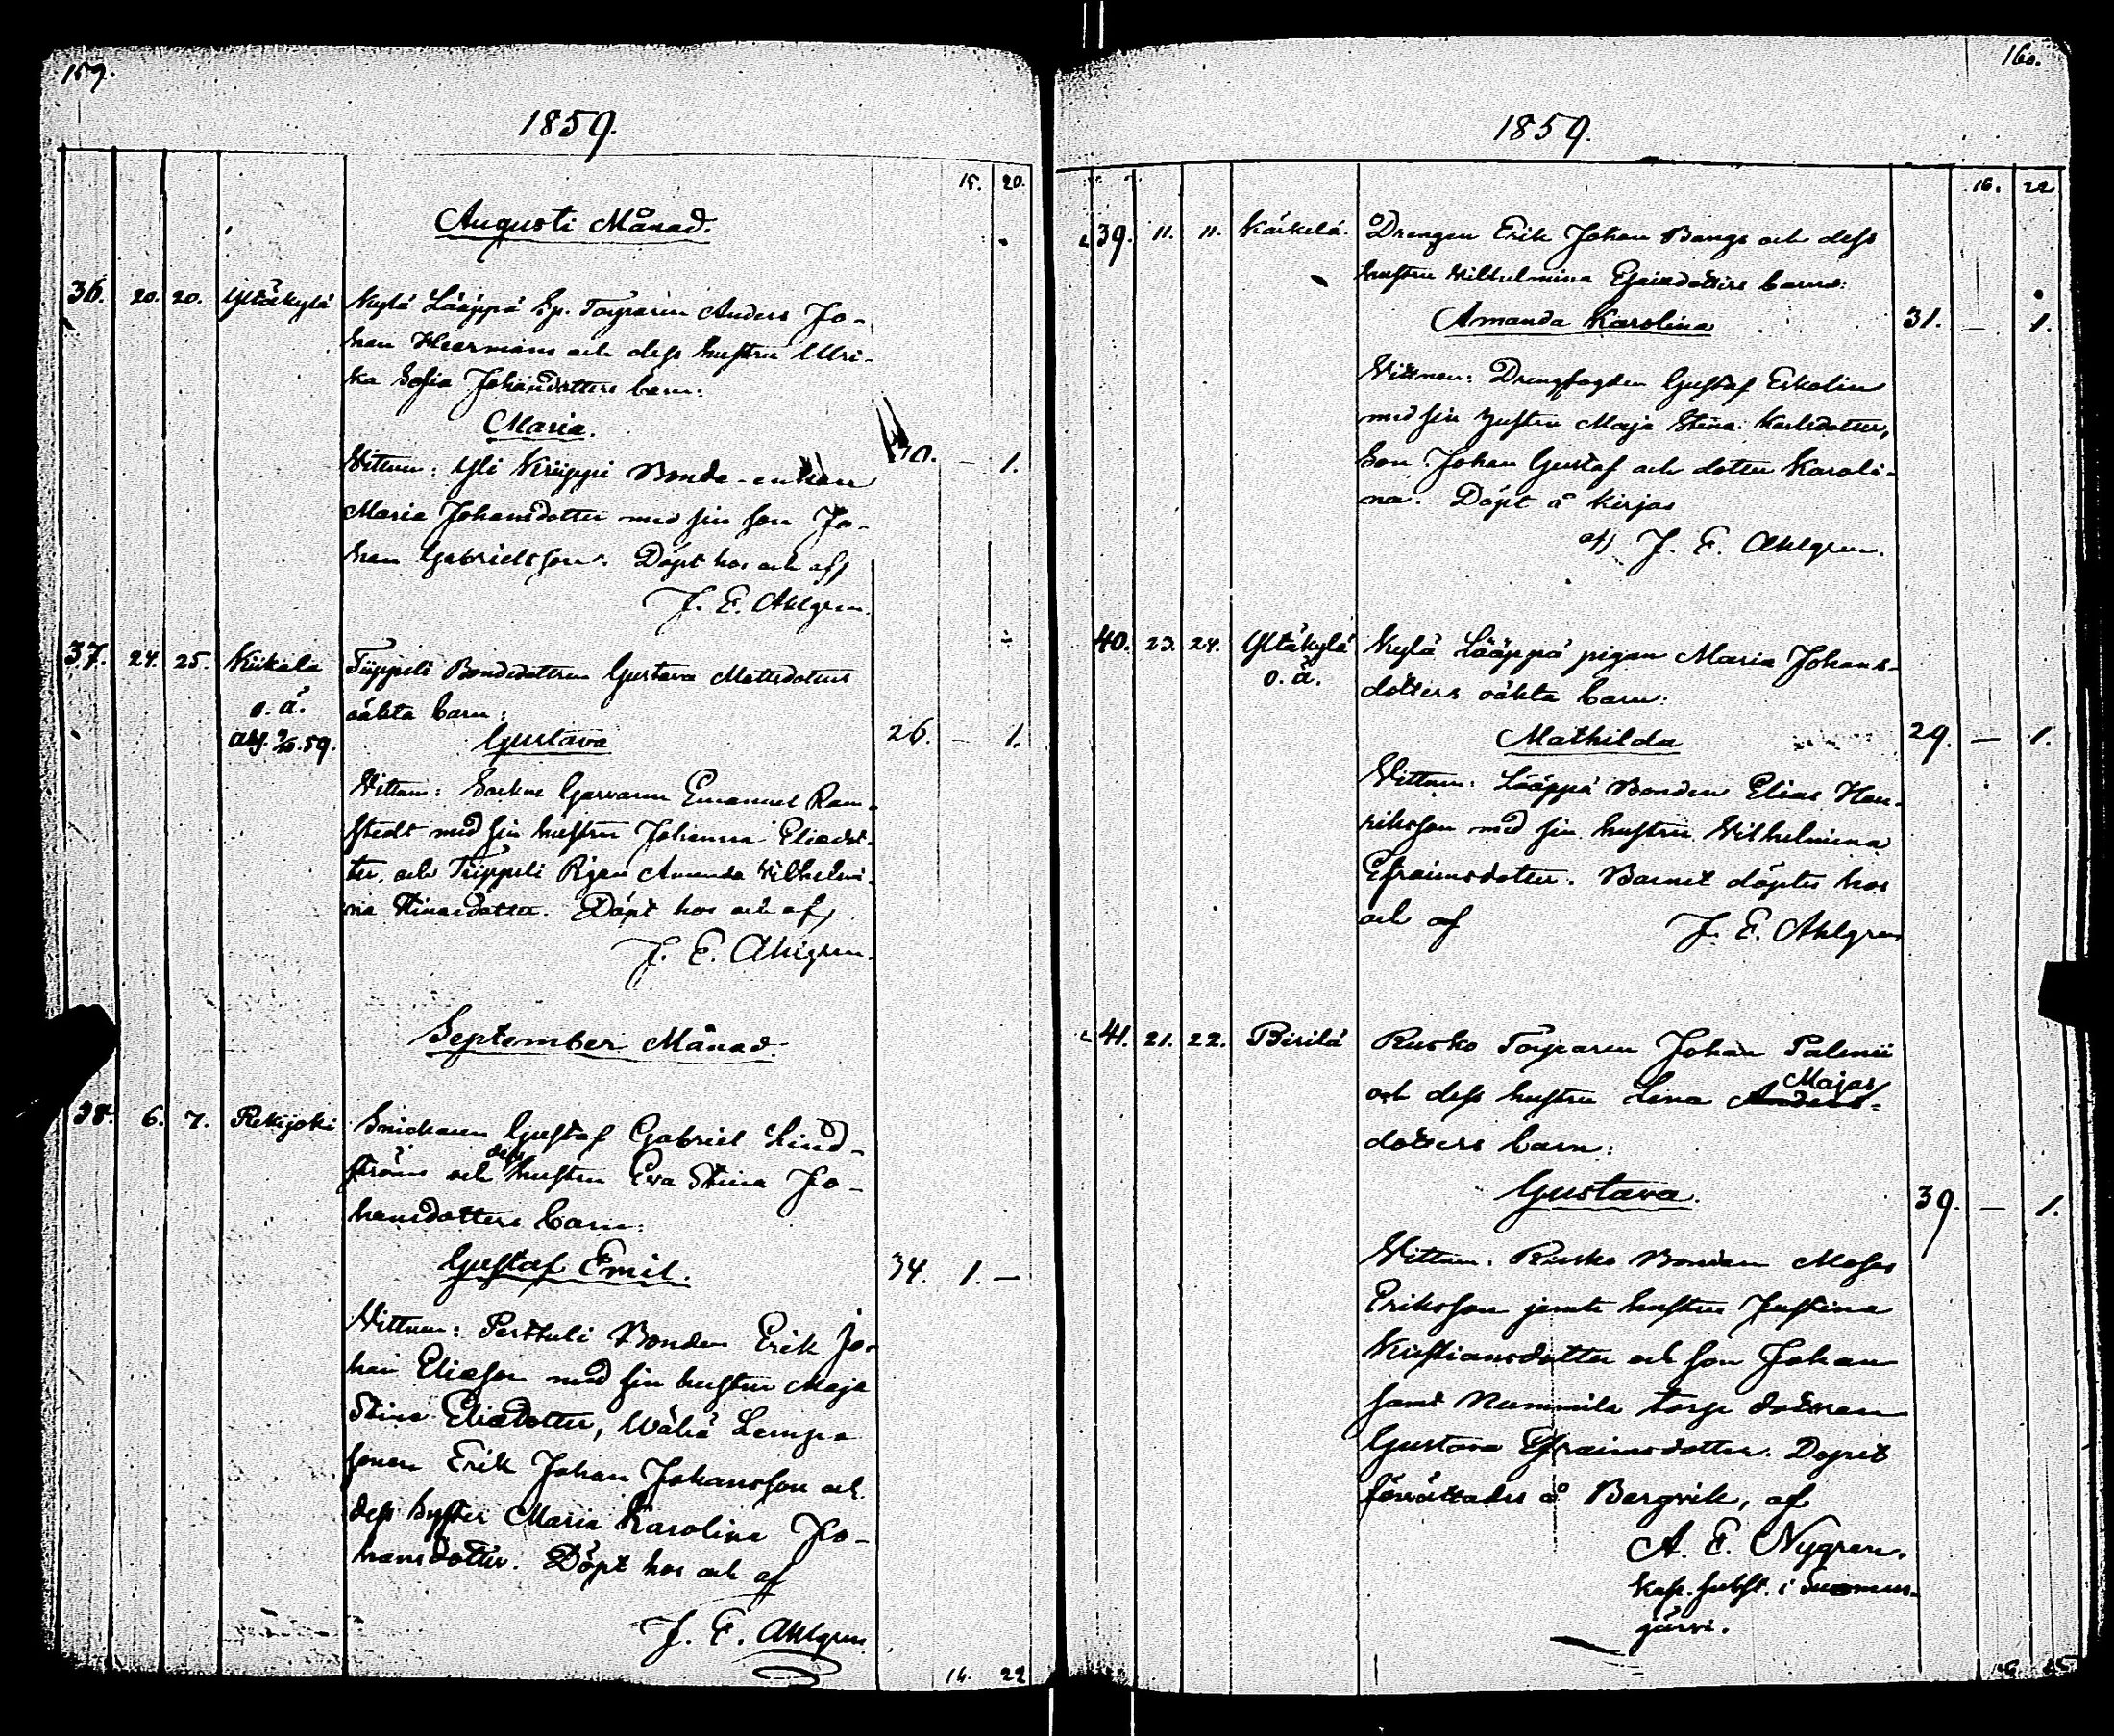 159.
1859.
15. 20.
Augusti Månad.
36. 20. 20. Yltäkylä Kylä Lääppä Sp. Torparen Anders Jo-
han Heermans och dess hustru Ulri-
ka Sofia Johansdotters barn:
Maria.
Vittnen: Yli Kriippi Bonde-enkan 40. – 1.
Maria Johansdotter med sin son Jo-
han Gabrielsson. Döpt hos och af
J. E. Ahlgren.
37. 24. 25. Kiikala Tiippeli Bondedottren Gustava Mattsdotters
o. ä. oäkta barn:
Gustava 26. – 1.
Vittnen: Sockne Garvaren Emanuel Ram-
stedt med sin hustru Johanna Eliædot-
ter, och Tiippeli Pigan Amanda Vilhelmi-
na Döpt hos och af
J. E. Ahlgren.
September Månad.
38. 6. 7. Rekijoki Snickaren Gustaf Gabriel Lind-
ströms och dess hustru Eva Stina Jo-
hansdotters barn:
Gustaf Emil. 34. 1. –
Vittnen: Perttuli Bonden Erik Jo-
han Eliæson med sin hustru Maja
Stina Eliædotter, Wähä Lempa
sonen Erik Johan Johansson och
dess Syster Maria Karolina Jo-
hansdotter. Döpt hos och af
J. E. Ahlgren
16. 22
160.
1859.
16. 22
39. 11. 11. Kärkelä. Drengen Erik Johan Bangs och dess
hustru Vilhelmina Esaiædotters barn:
Amanda Karolina 31. – 1.
Vittnen: Drengfogden Gustaf Eskolin
med sin hustru Maja Stina Karlsdotter,
Son Johan Gustaf och dotter Karoli-
na. Döpt å Kirjas
af J. E. Ahlgren.
40. 23. 24. Yltäkylä Kylä Lääppä pigan Maria Johans-
o. ä. dotters oäkta barn:
Mathilda 29. – 1.
Vittnen: Lääppä Bonden Elias Hen-
riksson med sin hustru Vilhelmina
Efraimsdotter. Barnet döptes hos
och af J. E. Ahlgren
41. 21. 22. Pirilä Rusko Torparen Johan Palenii
Majas
och dess hustru Lena Anders-
dotters barn:
Gustava. 39. – 1.
Vittnen: Rusko Bonden Moses
Eriksson jemte hustru Justina
Kristiansdotter och son Johan
samt Nummila torp dottren
Gustava Efraimsdotter. Dopet
förrättades å Bergvik, af
A. E. Nygren.
Kap. subst. i Suomus-
järvi.